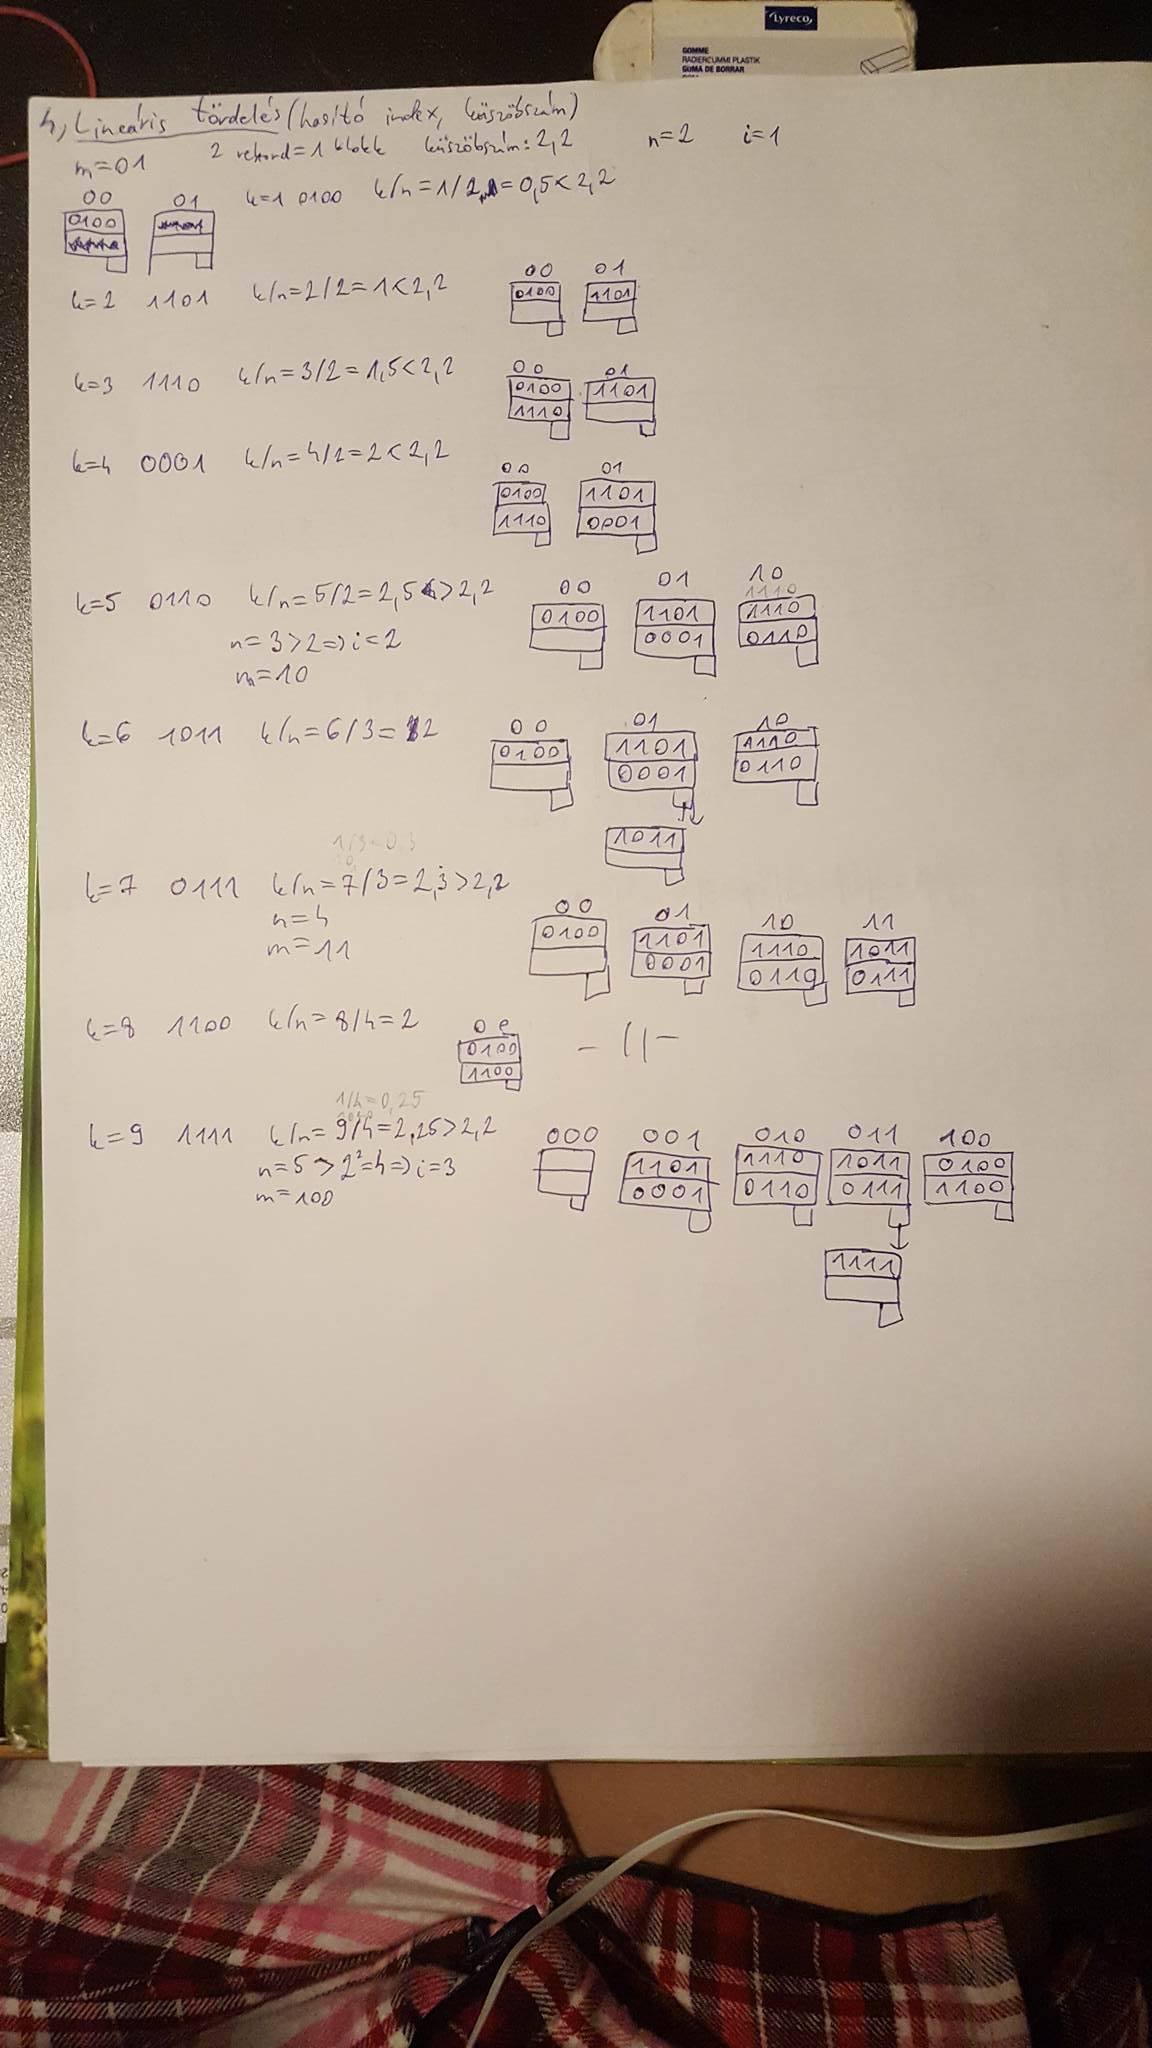 Lyreco
GOMME
RADIERGUMMI PLASTIK
GOMA DE BORRAR
4, Lineáris tördelés (hasító index, küszöbszám)
m=01 2 rekord=1 blokk küszöbszám: 2,2 n=2 i=1
00 01 k=1 0100 k/n=1/2=0,5<2,2
0100
k=2 1101 k/n=2/2=1<2,2 00 01
0100 1101
k=3 1110 k/n=3/2=1,5<2,2 00 01
0100 1101
1110
k=4 0001 k/n=4/2=2<2,2 00 01
0100 1101
1110 0001
k=5 0110 k/n=5/2=2,5>2,2 00 01 10
1110
0100 1101 1110
n=3>2=>i=2 0001 0110
m=10
k=6 1011 k/n=6/3=2 00 01 10
0100 1101 1110
0001 0110
1011
1/3=0,3
k=7 0111 k/n=7/3=2,3>2,2
n=4 00 01 10 11
m=11 0100 1101 1110 1011
0001 0110 0111
k=8 1100 k/n=8/4=2 00
0100 -11-
1100
1/4=0,25
k=9 1111 k/n=9/4=2,25>2,2 000 001 010 011 100
n=5>2²=4=>i=3 1101 1110 1011 0100
m=100 0001 0110 0111 1100
1111